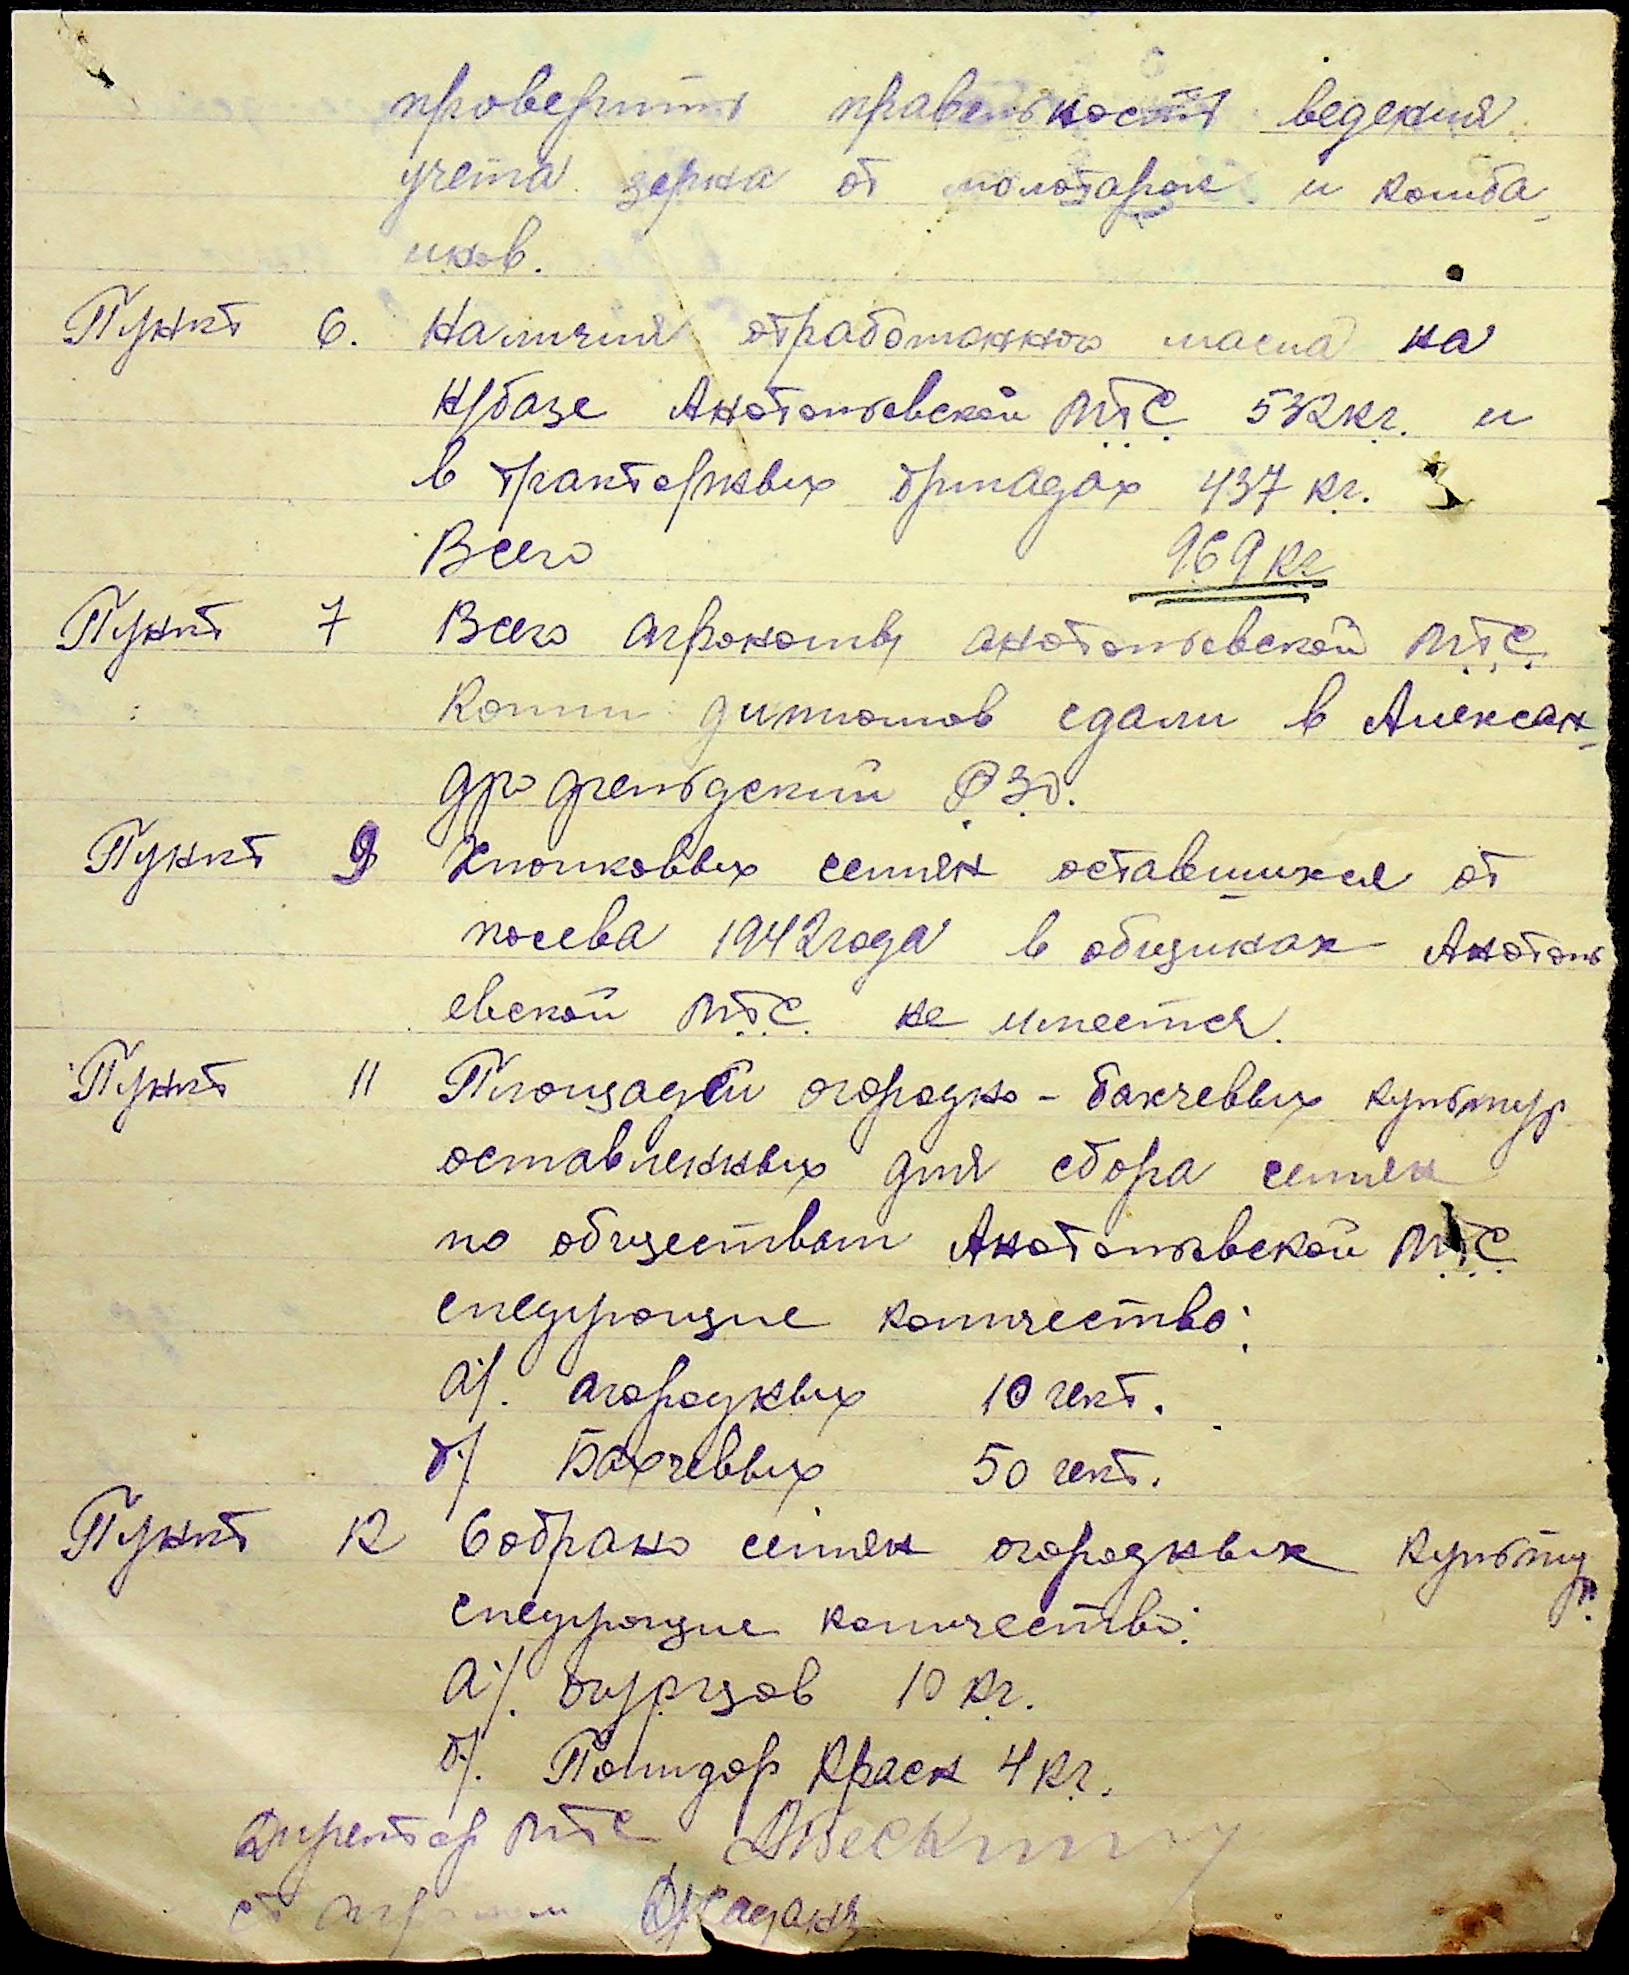 проверить правельность ведения
учета зерна от молотарок и комба
инов.
Пункт 6. Наличия отработанного масла на
н/базе Анотольевской МТС 532 кг. и
в тракторных бригадах 437 кг.
Всего 969 кг
Пункт 7 Всего агрономы анотольевской МТС
копии дипломов сдали в Алексан-
дродгельдский РЗО.
Пункт 9 Хлопковых семян оставшихся от
посева 1942 года в общинах Анотоль
евской МТС не имеется.
Пункт 11 Площадей огородно-бахчевых культур
оставленных для сбора семян
по обществам Анотольевской МТС
следующие количество:
а/. огородных 10 гект.
б/. Бахчевых 50 гект.
Пункт 12 Собрано семян огородных культур.
следующие количество:
а/. огурцов 10 кг.
б/. Помидор Красн 4 кг.
Директор МТС
ст агроном